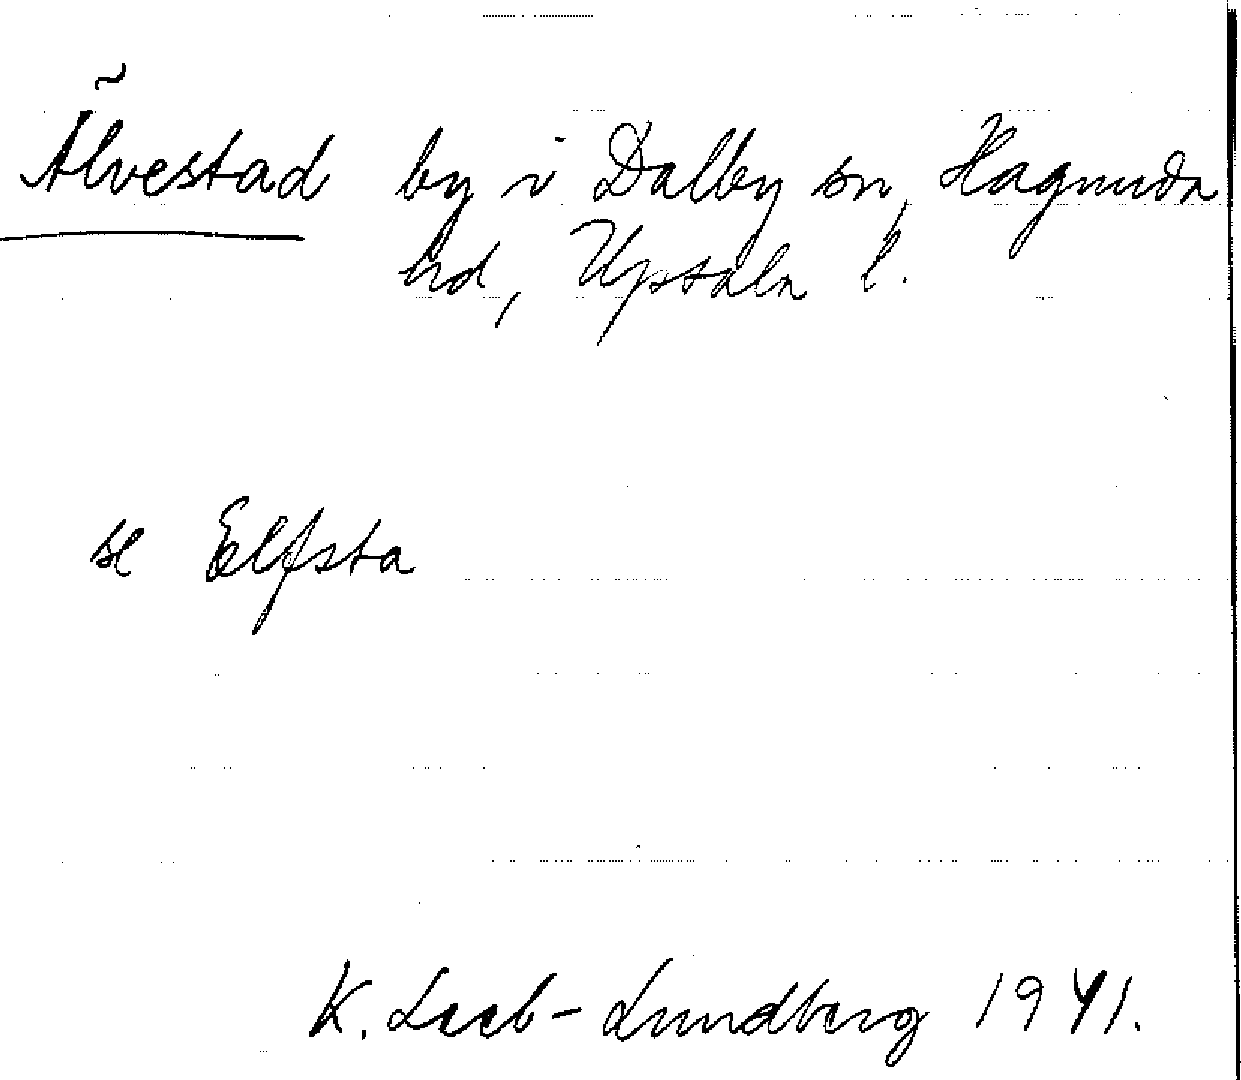 Älvestad by i Dalby sn, Hagunda
hd, Uppsala l.
se Elfsta
K. Leeb-Lundberg 1941.